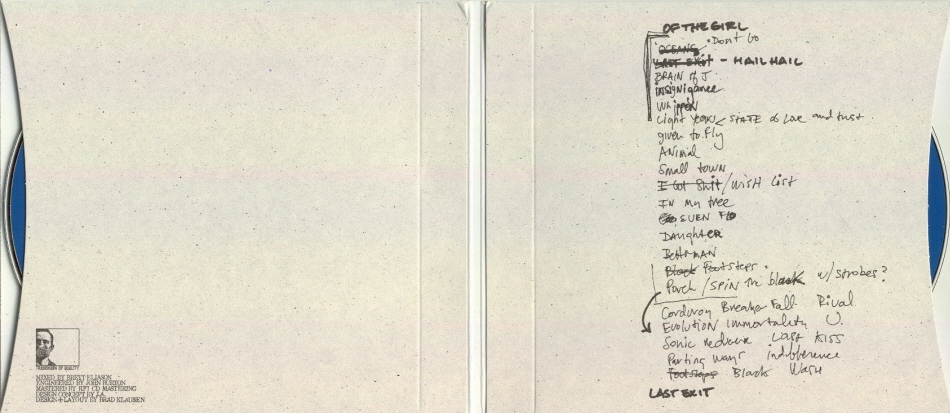 TRADEMARK OF QUALITY
MIXED BY BRETT ELIASON
ENGINEERED BY JOHN BURTON
MASTERED BY RFI CD MASTERING
DESIGN CONCEPT BY J.A.
DESIGN + LAYOUT BY BRAD KLAUSEN
OF THE GIRL
OCEANS Don't Go
LAST EXIT - HAIL HAIL
BRAIN of J
Insignigance
Whippin
Light Years < STATE of Love and trust
given to Fly
ANiMal
Small town
I Got Shit / WISH List
IN My tree
EVEN FLO
DAUghtER
BettRMAN
Black Footsteps
Porch / SPIN the black w/ strobes?
Corduroy Breaker Fall Rival
Evolution Immortality U.
Sonic reducer Last Kiss
Parting Ways indifference
Footsteps Black Wash
LAST EXIT